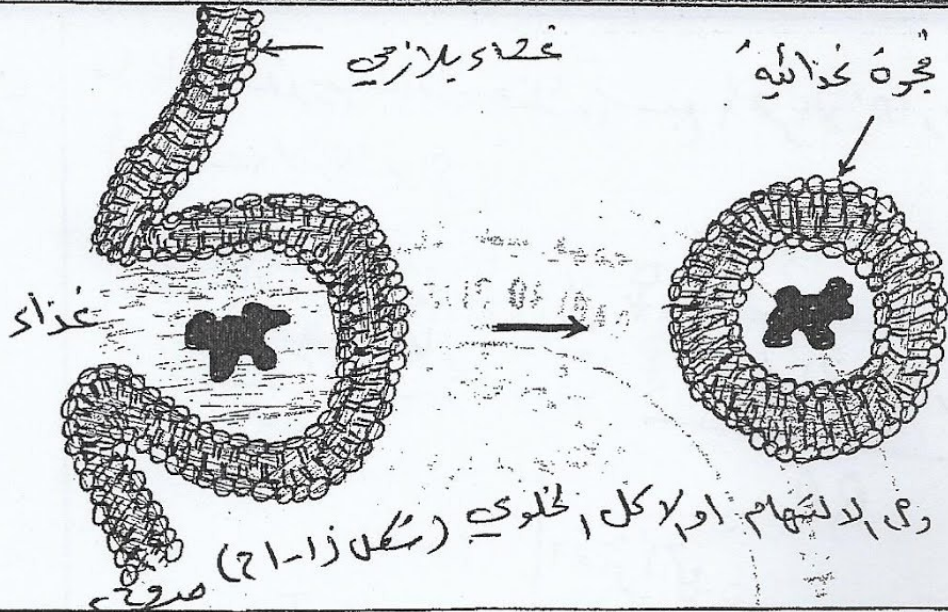 غشاء بلازمي
فجوة غذائية
غذاء
الالتهام او الاكل الخلوي (شكل